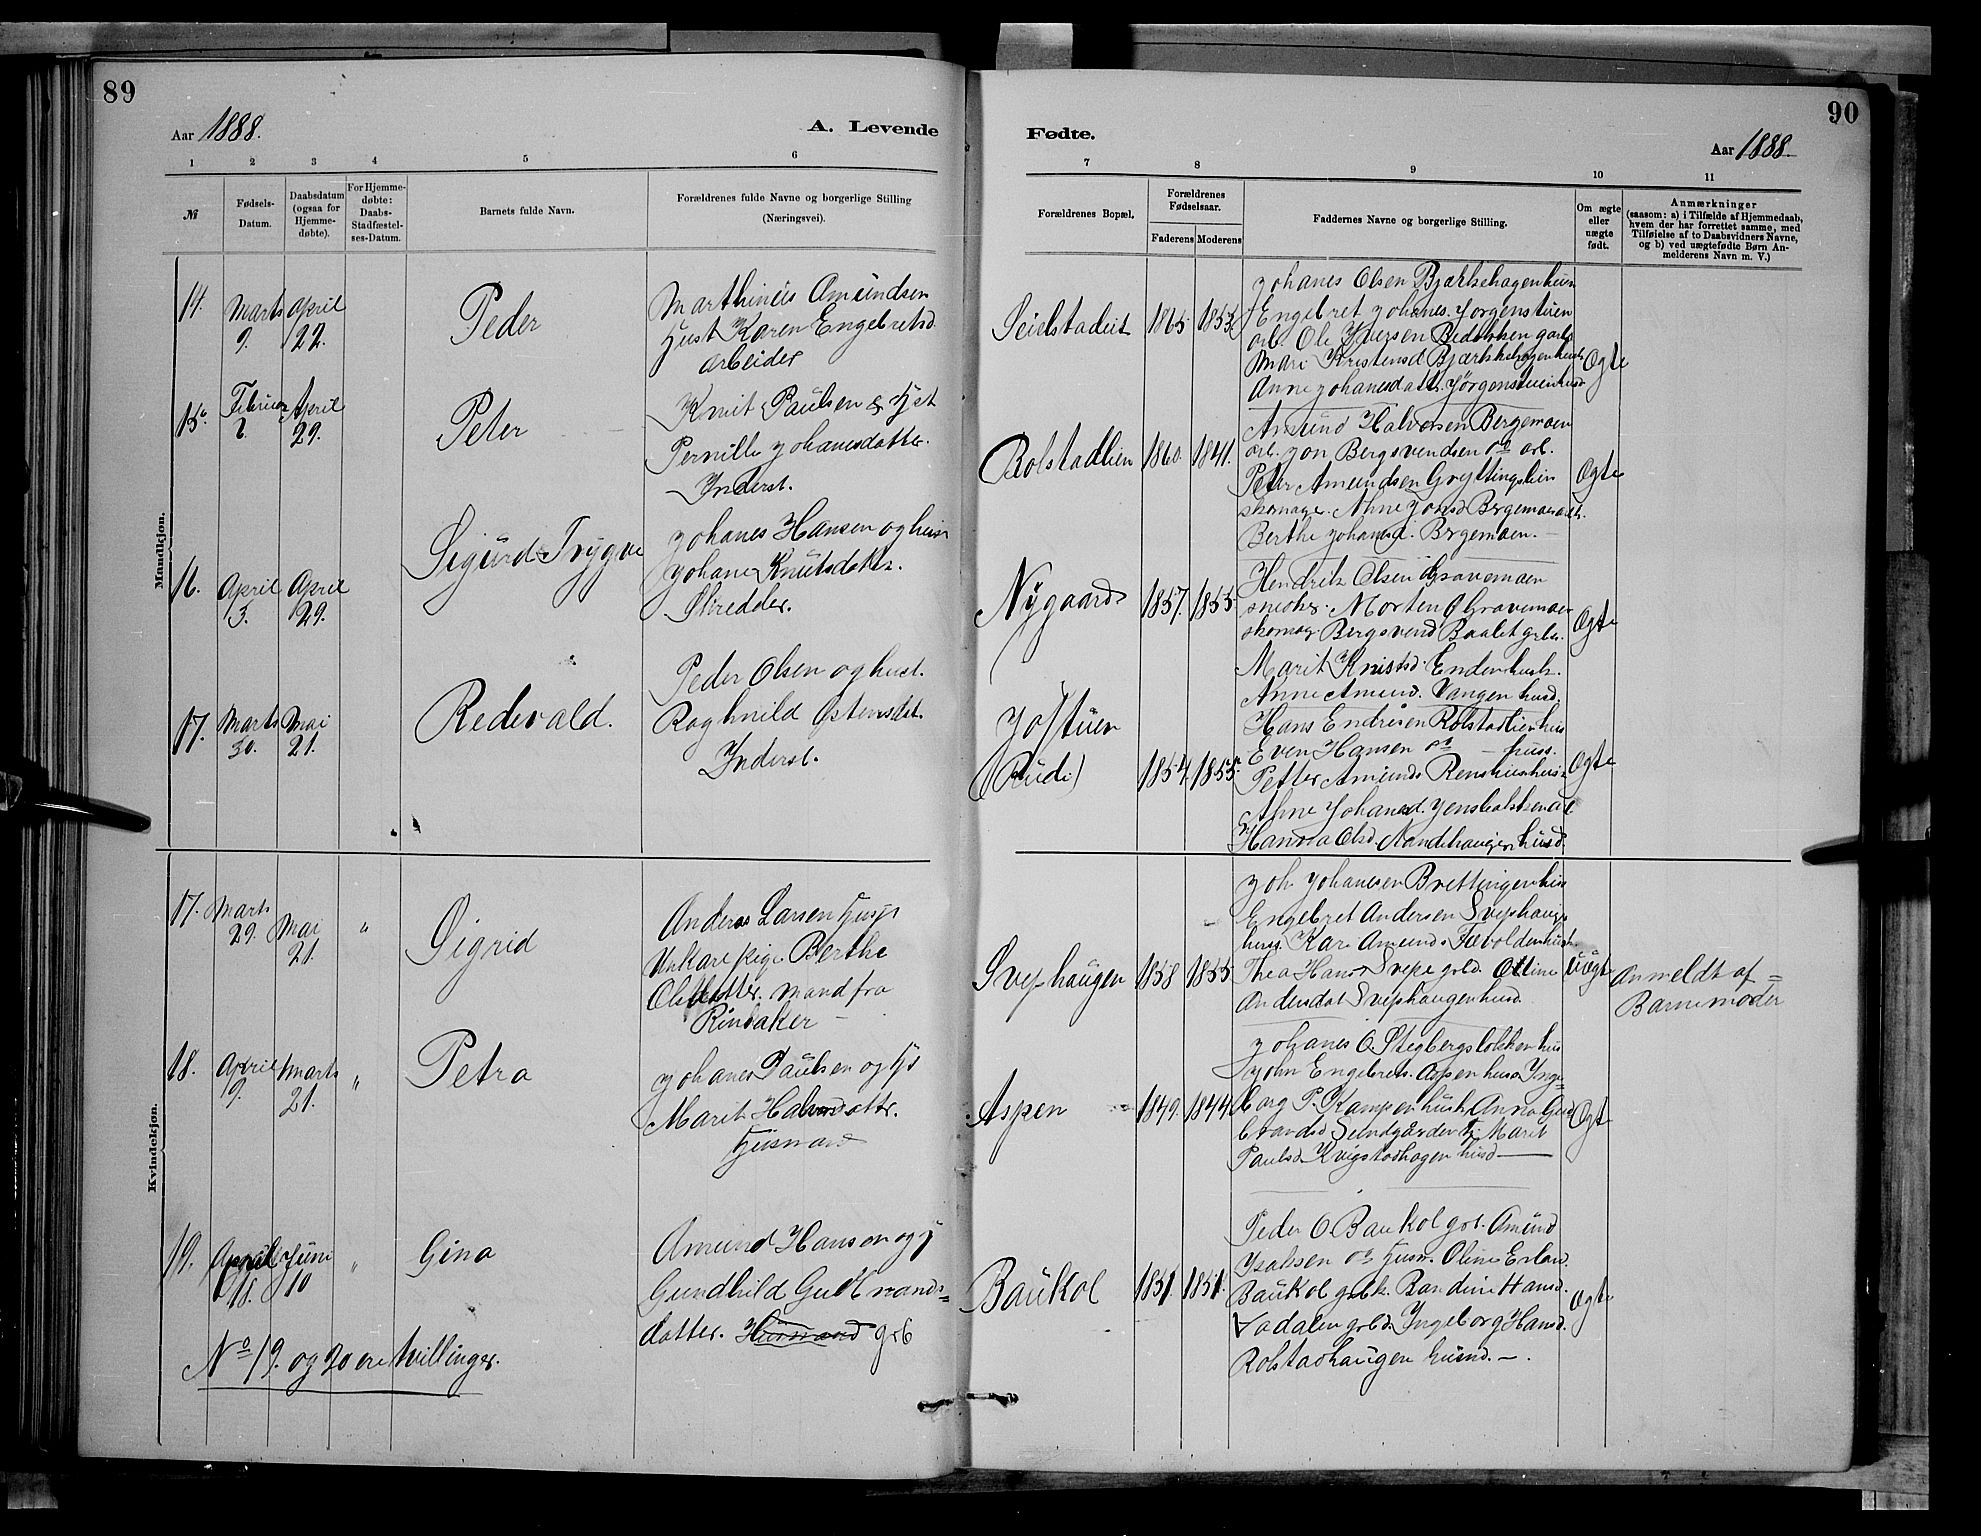 89
Aar 1888.
A. Levende
1 2 3 4 5 6
№
Fødsels-
Datum.
Daabsdatum
(ogsaa for
Hjemme-
døbte).
For Hjemme-
døbte:
Daabs-
Stadfæstel-
ses-Datum.
Barnets fulde Navn.
Forældrenes fulde Navne og borgerlige Stilling
(Næringsvei).
Mandkjøn.
14. Marts
9.
April
22.
Peder
Marthinus Amundsen
Hust Karen Engebretsd.
arbeider
15. Februar
2.
April
29.
Peter
Knut Paulsen & Hst
Pernille Johanesdatter.
Inderst.
16. April
3.
April
29.
Sigurd Trygve
Johanes Hansen og hust
Johane Knutsdatter.
Skredder.
17. Marts
30.
Mai
21.
Redevald.
Peder Olsen og hust.
Raghnild Østensdat.
Inderst.
Kvindekjøn.
17. Marts
29.
Mai
21.
"
Sigrid
Anders Larsen
Unkar. Pige Berthe
Olsdatter. mand fra
Rindaker
18. April
9.
Marts
21.
"
Petra
Johanes Paulsen og
Marit Halvorsdatter.
Husmand
19. April
18.
Juni
10
"
Gina
Amund Hansen og
Gundhild Gudbrands=
datter. Husmand grb
No 19. og 20 ere tvillinger.
90
Fødte.
Aar 1888.
7 8 9 10 11
Forældrenes Bopæl.
Forældrenes
Fødselsaar.
Faderens Moderens
Faddernes Navne og borgerlige Stilling.
Om ægte
eller
uægte
født.
Anmærkninger
(saasom: a) i Tilfælde af Hjemmedaab,
hvem der har forrettet samme, med
Tilføielse af to Daabsvidners Navne,
og b) ved uægtefødte Børn An-
melderens Navn m. V.)
1865 1853
Johanes Olsen
Engebret Johanes. Jørgenstuen
arb. Ole Iversen
Mari Kristensd.
Anne Johanesdatt. Jørgenstuen
Ægte
Rolstadlien 1860. 1841.
Amund Halvorsen Bergemoen
arb. Jon Bergsvendsen do arb.
Peter Amundsen Gryttingslien
skomager. Anne Jonsd. Bergemoen
Berthe Johansd. Bergemoen.
Ægte
Nygaard 1857. 1855.
Hendrik Olsen Gravemoen
snedker. Morten O Gravemoen
skomag. Bergsvend Baalet grbr.
Marit Knutsd. Enden husk.
Anne Amund. Vangen husd.
Ægte
Jostuen
(Rudi) 1854 1855.
Hans Endresen Rolstadlien hus
Even Hansen do huss.
Petter Amunds.
Anne Johanesd.
& Hanna Olsd. husd.
Ægte
Svephaugen 1858 1855
Joh. Johanesen Brettingen hus
Engebret Andersen Svephaugen
huss. Kari Amunds.
Thea Hans. Svepe grbd. Oline
Andersdat Svephaugen husd.
Uægte
Anmeldt af =
Barnemoder
Aspen 1849. 1844.
Johanes O. Stegbergslokken hus
John Engebrets. Aspen huss. Inge-
borg P. Kampen husk. Anna Gud
brandsd. Sundgården Marit
Paulsd. Kvigstadhagen husd
Ægte
Baukol 1851. 1851.
Peder O Baukol grb. Amund
Isaksen do Husm. Oline Erland.
Baukol grbk. Randine Hansd.
Vadalen grbd. Ingeborg Hansd.
Rolstadhaugen husd.
Ægte